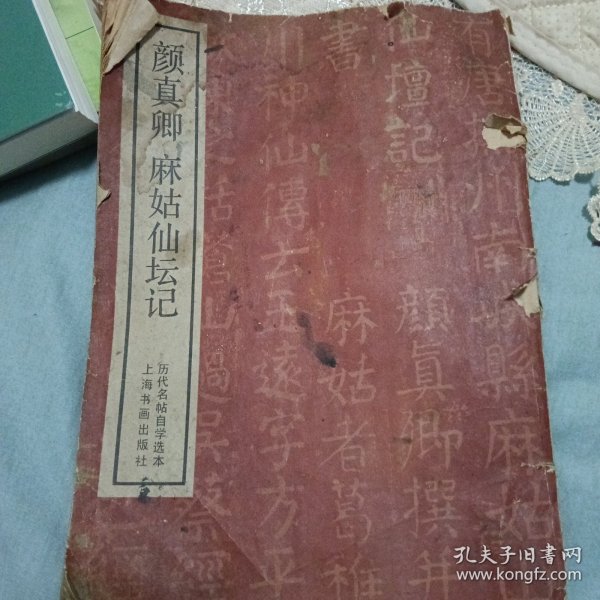 颜真卿 麻姑仙坛记
历代名帖自学选本
上海书画出版社
有唐抚州南城縣麻姑
仙壇記 顔真卿撰并
書
麻姑者葛稚
川神仙傳云王遠字方平
孔夫子旧书网
www.kongfz.com